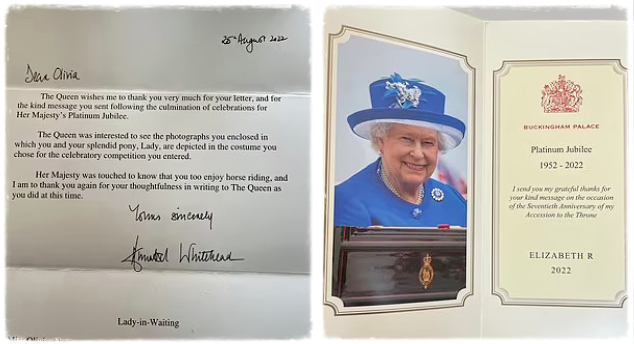 25th August 2022
Dear Olivia
The Queen wishes me to thank you very much for your letter, and for
the kind message you sent following the culmination of celebrations for
Her Majesty's Platinum Jubilee.
The Queen was interested to see the photographs you enclosed in
which you and your splendid pony, Lady, are depicted in the costume you
chose for the celebratory competition you entered.
Her Majesty was touched to know that you too enjoy horse riding, and
I am to thank you again for your thoughtfulness in writing to The Queen as
you did at this time.
Yours sincerely
Annabel Whitehead
Lady-in-Waiting
BUCKINGHAM PALACE
Platinum Jubilee
1952 - 2022
I send you my grateful thanks for
your kind message on the occasion
of the Seventieth Anniversary of my
Accession to the Throne
ELIZABETH R
2022